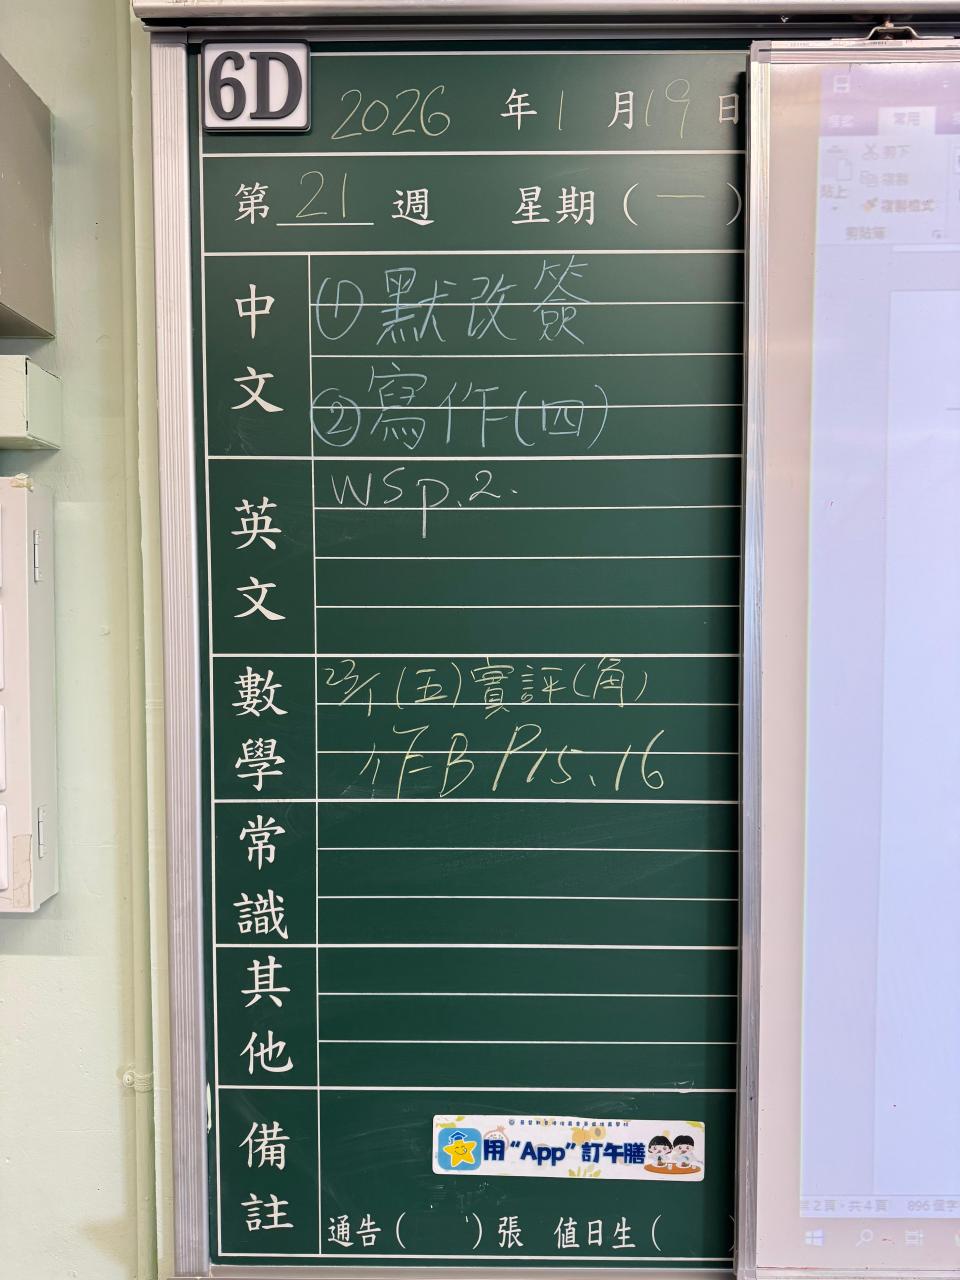 6D
2026 年 1 月 19 日
第 21 週 星期(一)
中文
① 默改簽
② 寫作(四)
英文
WS p.2.
數學
23/1(五)實評(角)
作B P15、16
常識
其他
備註
用“App”訂午膳
通告( )張 值日生(
常用
剪下
貼上
複製
複製格式
剪貼簿
第2頁，共4頁 896 個字